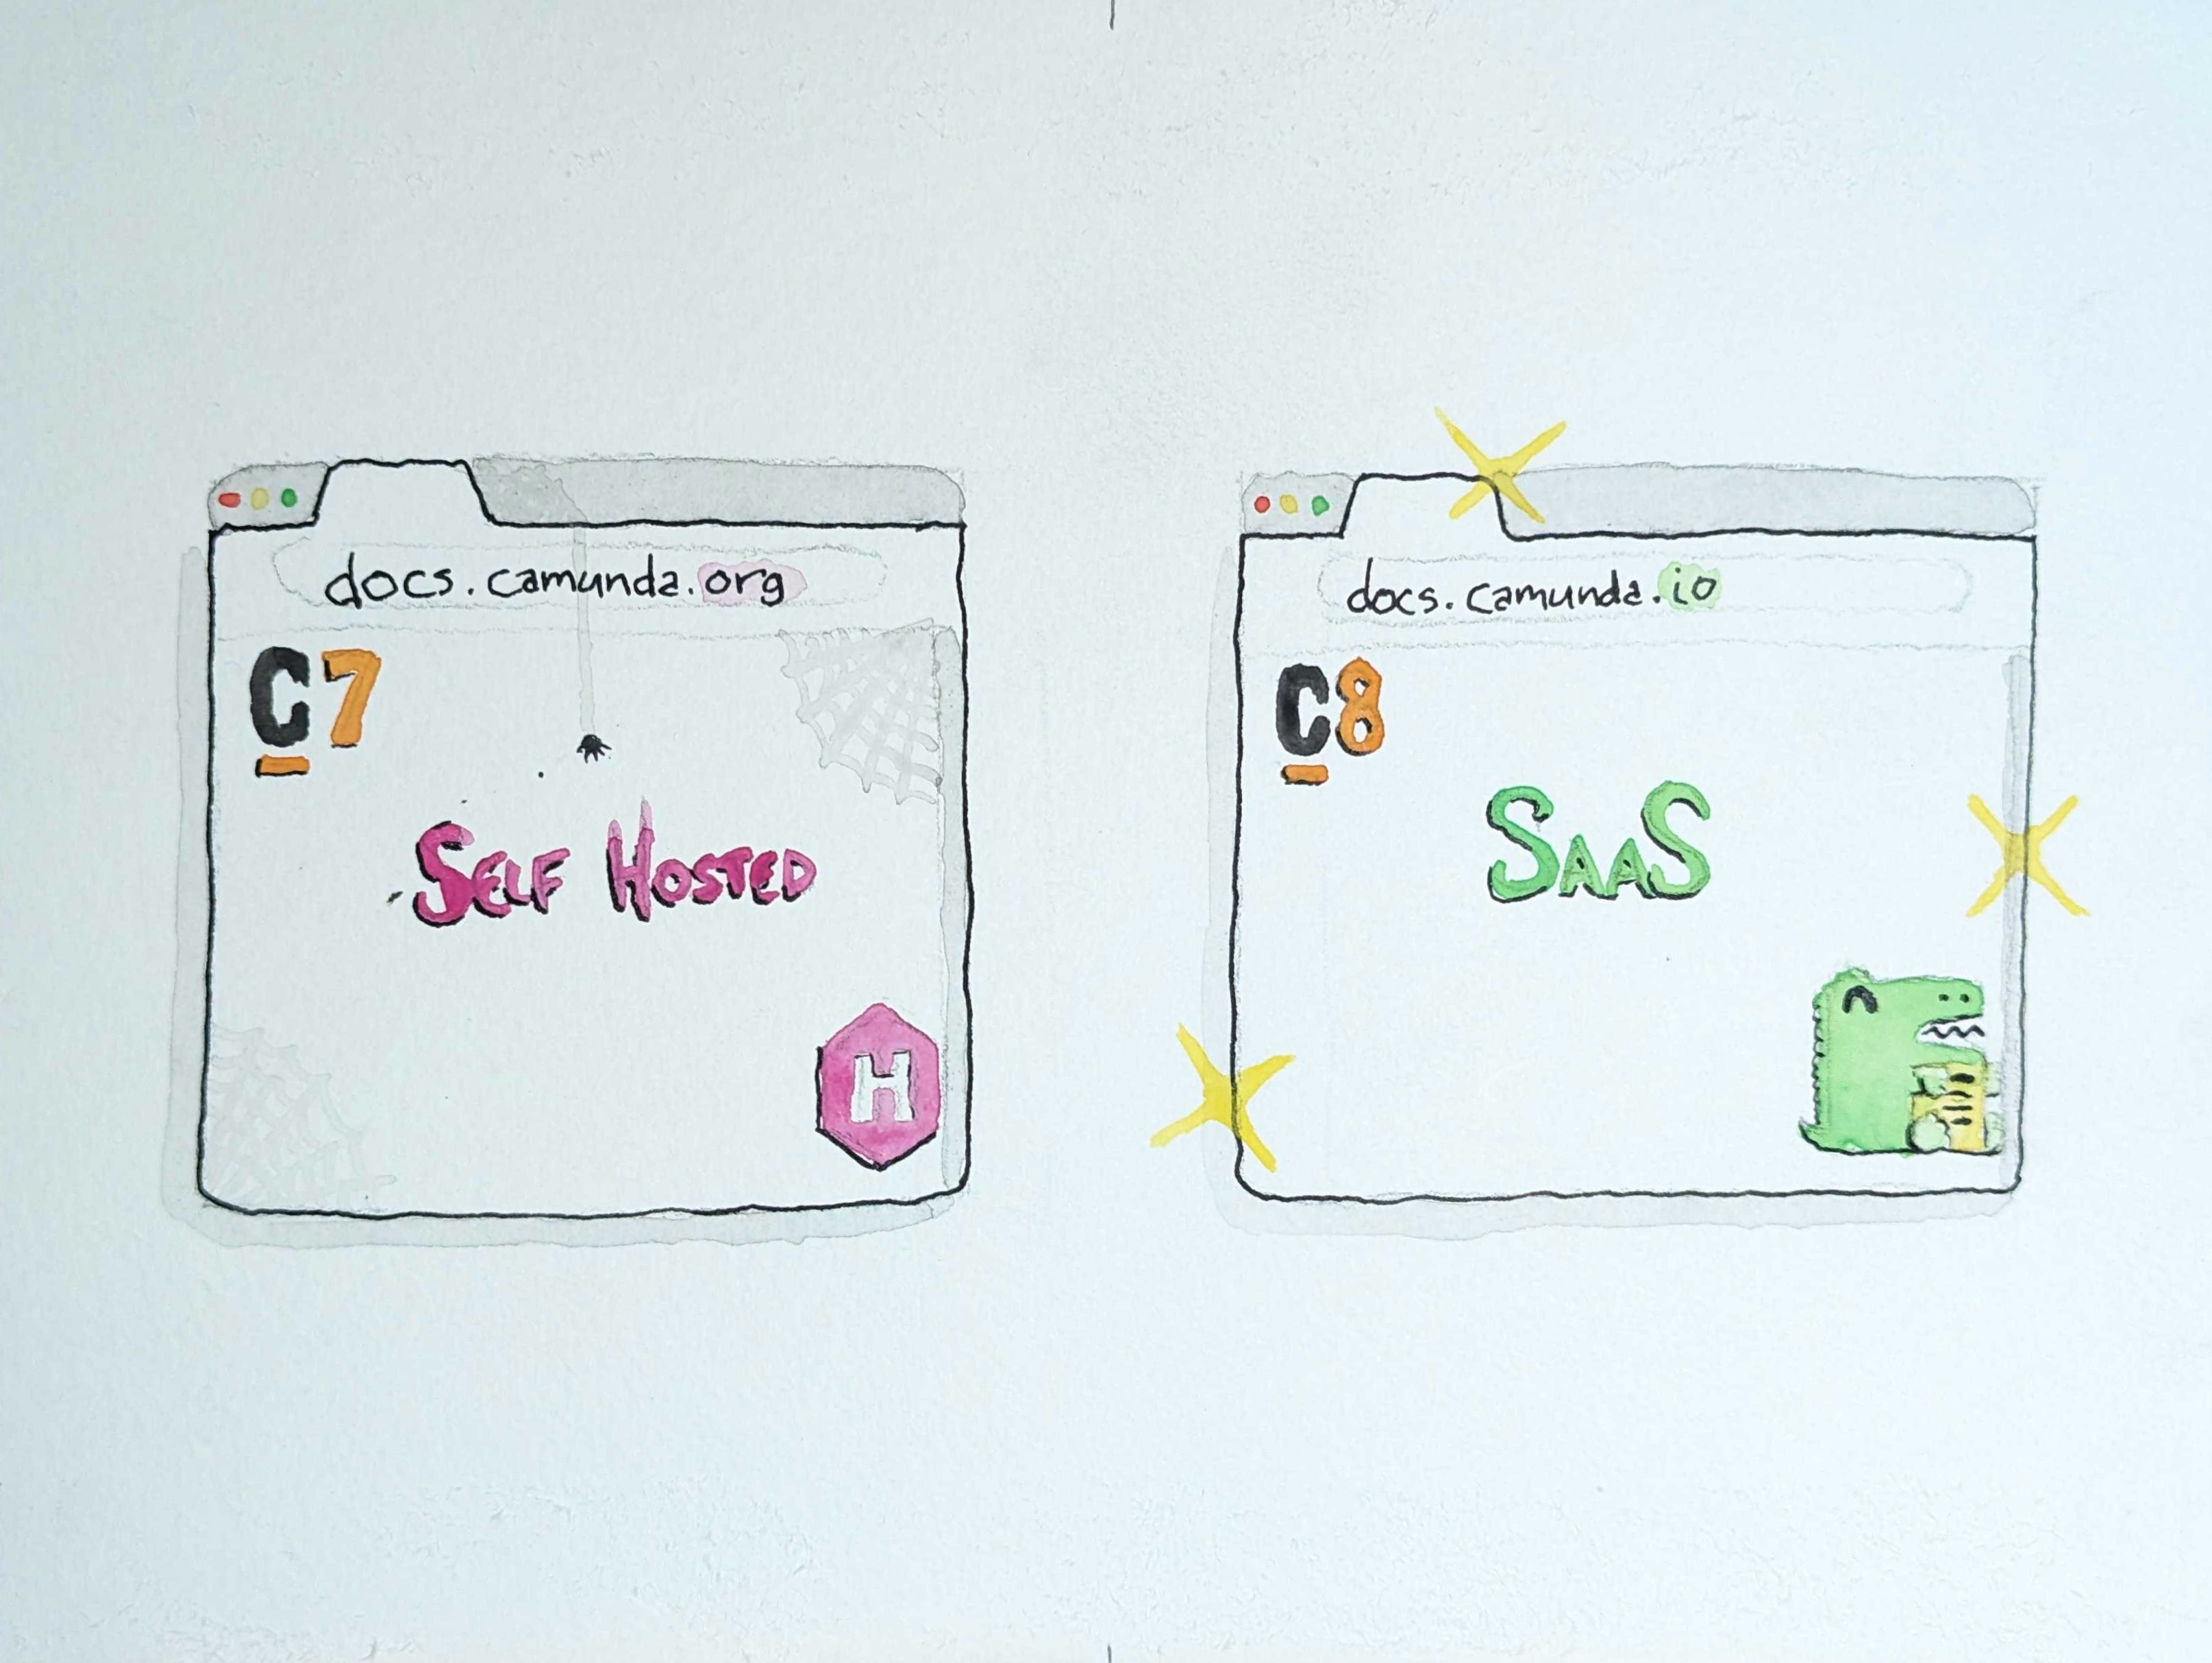 docs.camunda.org
C7
SELF HOSTED
H
docs.camunda.io
C8
SAAS